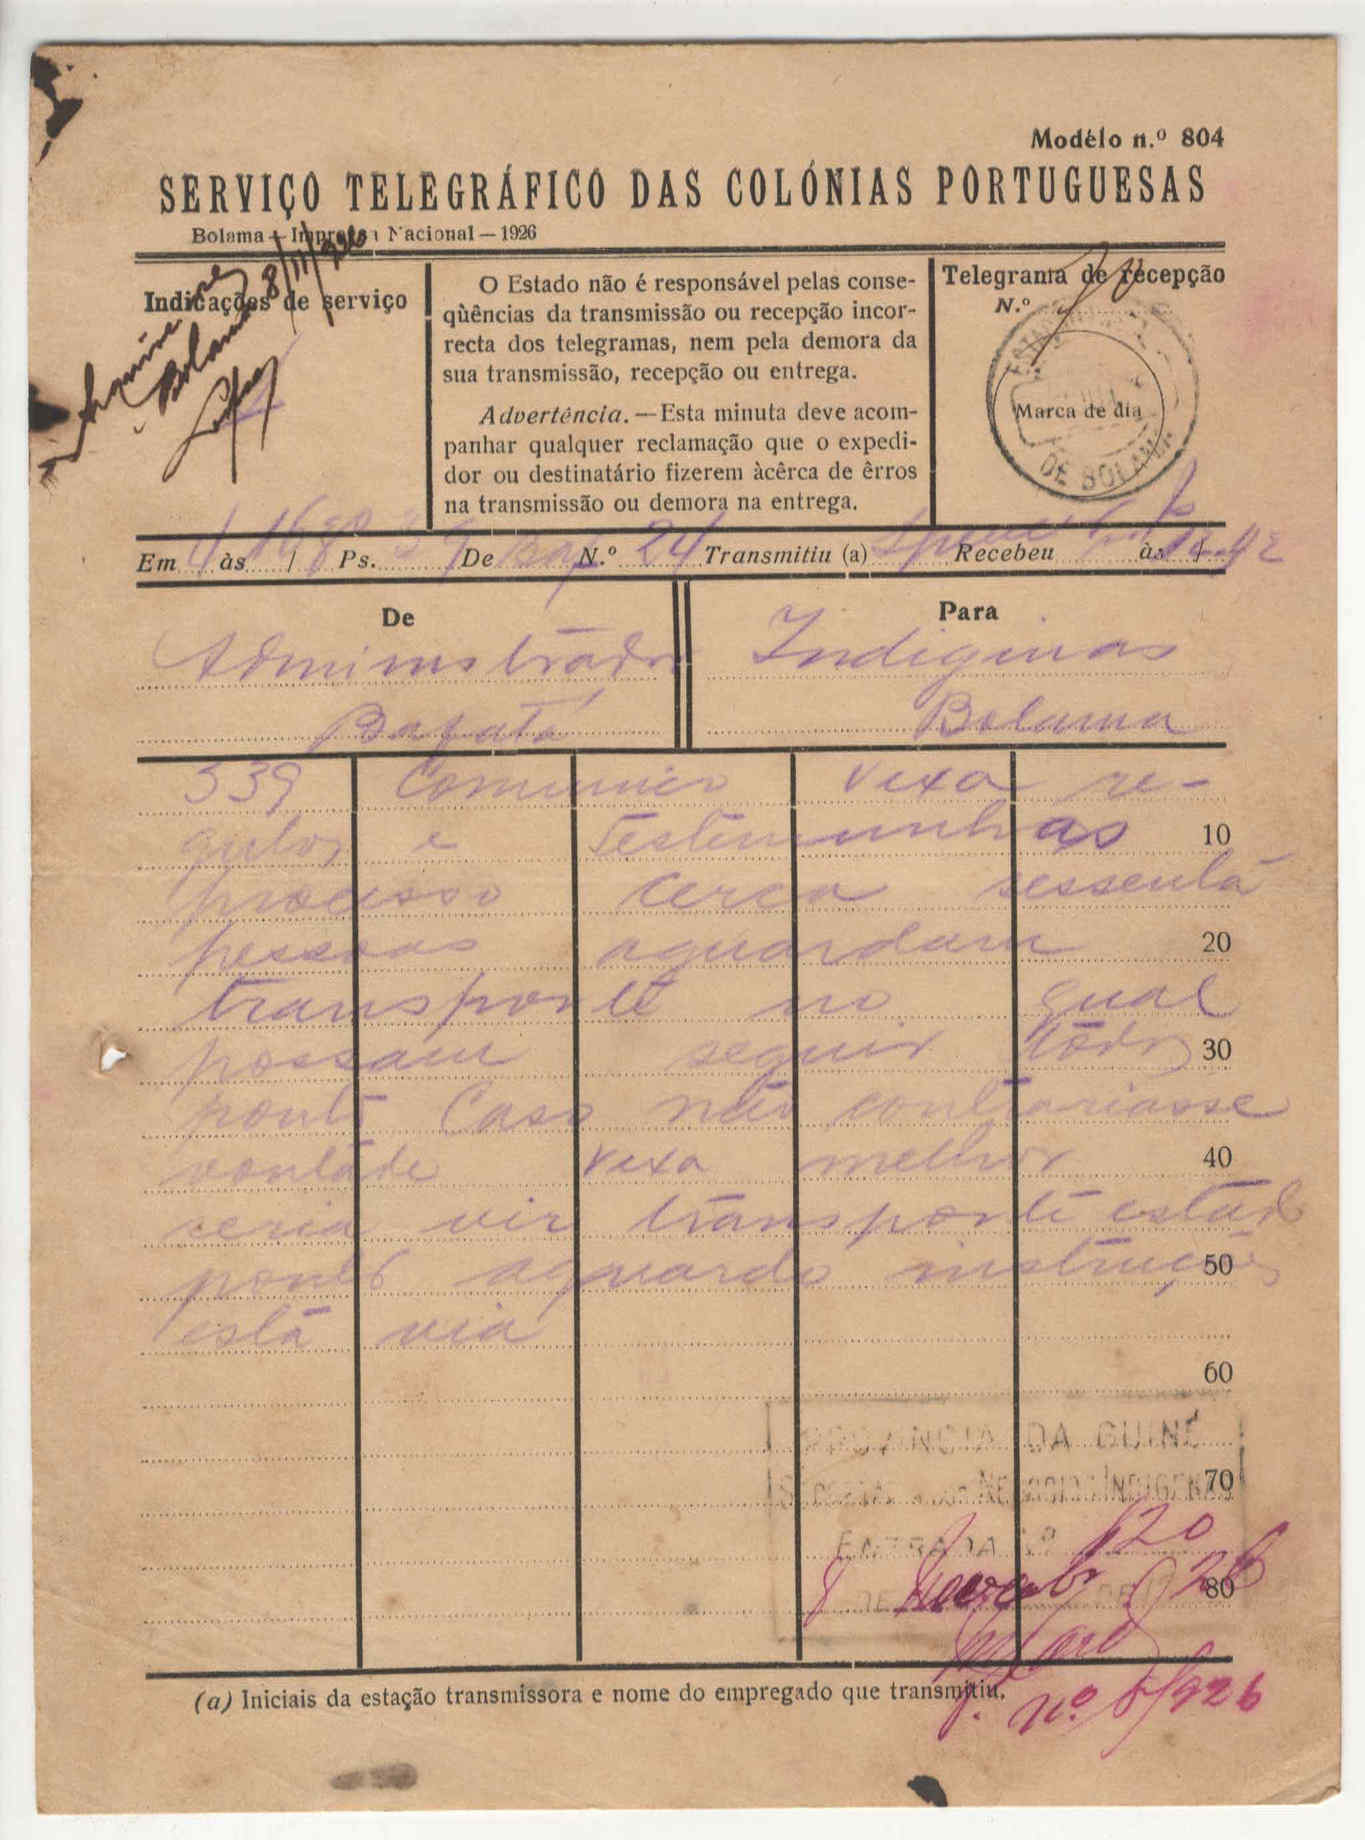 Modêlo n.º 804
SERVIÇO TELEGRÁFICO DAS COLÓNIAS PORTUGUESAS
Bolama — Imprensa Nacional — 1926
Indicações de serviço
Arquive
Bolama 8/11/926
O Estado não é responsável pelas conse-
qùências da transmissão ou recepção incor-
recta dos telegramas, nem pela demora da
sua transmissão, recepção ou entrega.
Advertência. — Esta minuta deve acom-
panhar qualquer reclamação que o expedi-
dor ou destinatário fizerem àcêrca de êrros
na transmissão ou demora na entrega.
Telegrama de recepção
N.º
Marca de dia
DE BOLAMA
Em às Ps. De Baf N.º 24 Transmitiu (a) Recebeu às
De
Administrador
Bafatá
Para
Indiginas
Bolama
539 Comunico vexa re-
gulos e testemunhas 10
processo cerca sessenta
pessoas aguardam 20
transporte no qual
possam seguir todos 30
ponto Caso não contrariasse
vontade vexa melhor 40
seria vir transporte estado
ponto aguardo instruções 50
esta via
60
70
80
PROVINCIA DA GUINÉ
NEGOCIOS INDIGENAS
ENTRADA Nº 120
8 Novembro 926
(a) Iniciais da estação transmissora e nome do empregado que transmitiu.
P. nº 5/926